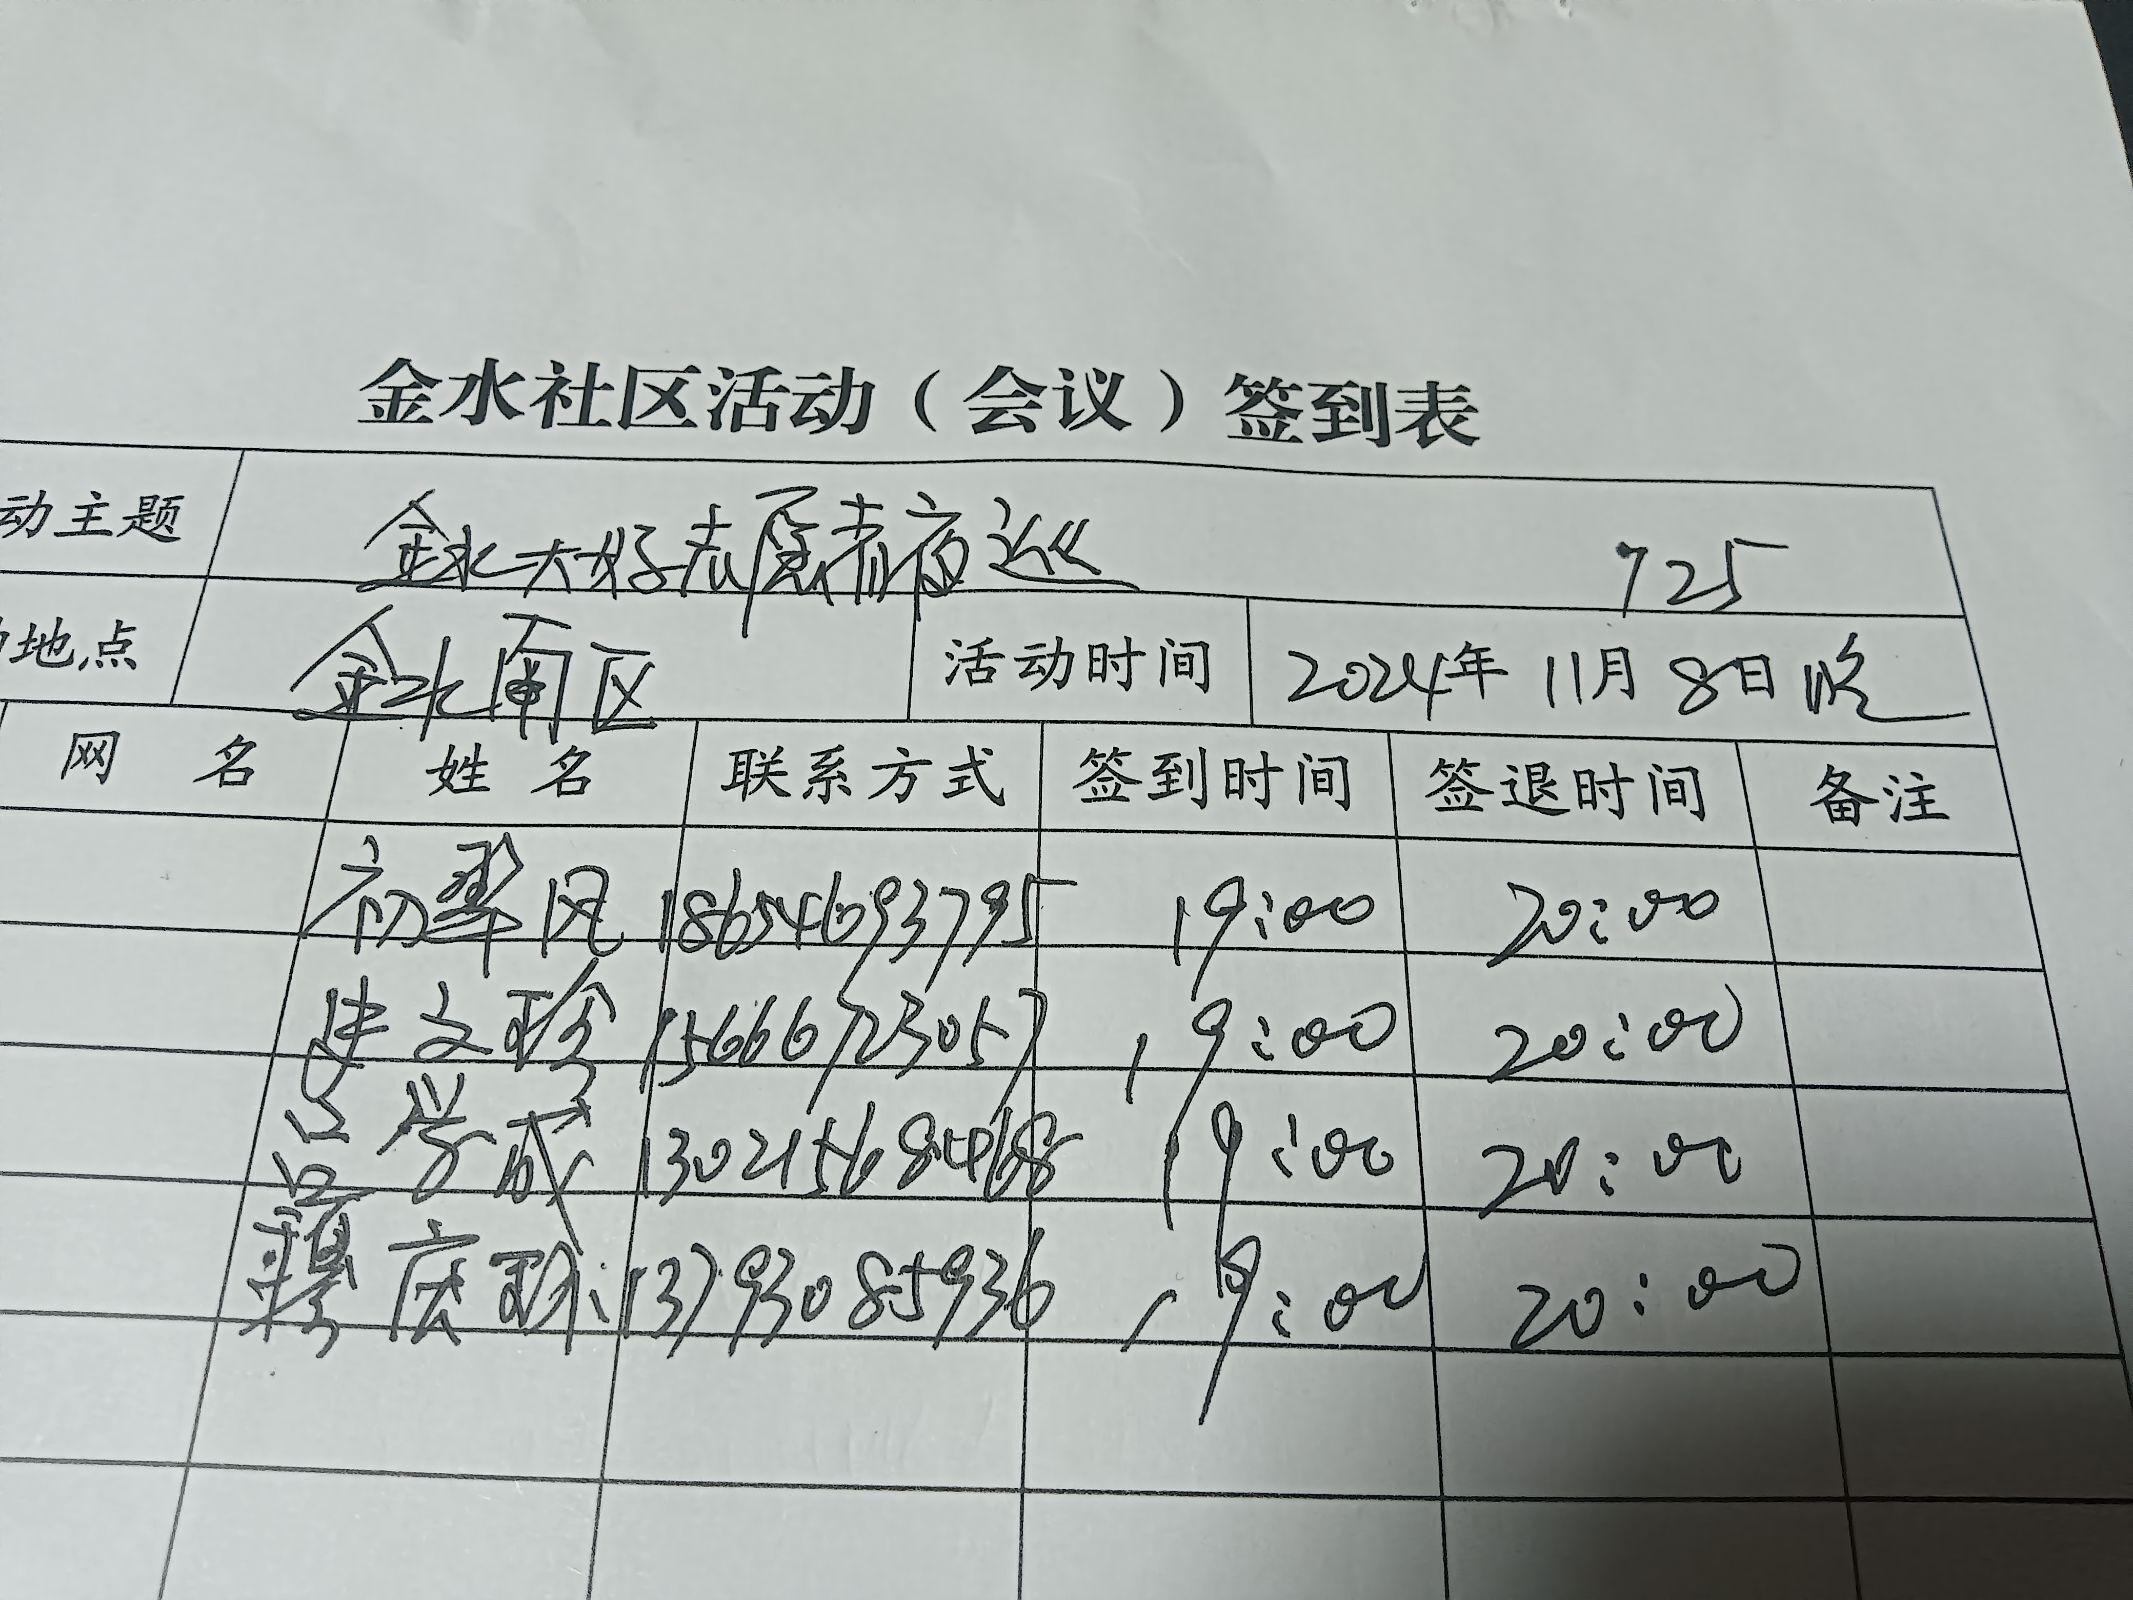 金水社区活动（会议）签到表
动主题 金水大好志愿者夜巡 725
地点 金水南区 活动时间 2024年 11月 8日晚
网 名 姓 名 联系方式 签到时间 签退时间 备注
初翠凤 18654693795 19:00 20:00
文珍 15666723057 19:00 20:00
吕学成 13021568468 19:00 20:00
穆庆珍 13793085936 19:00 20:00